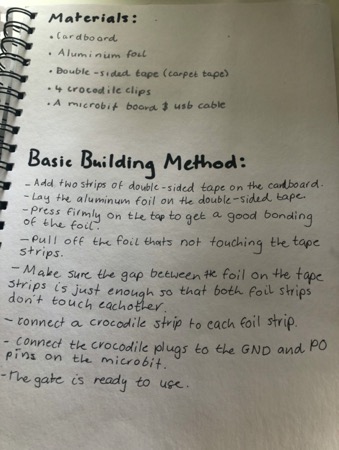 Materials:
• Cardboard
• Aluminum foil
• Double-sided tape (carpet tape)
• 4 crocodile clips
• A microbit board & usb cable
Basic Building Method:
- Add two strips of double-sided tape on the cardboard.
- Lay the aluminum foil on the double-sided tape.
- Press firmly on the top to get a good bonding
of the foil.
- Pull off the foil thats not touching the tape
strips.
- Make sure the gap between the foil on the tape
strips is just enough so that both foil strips
don't touch eachother.
- connect a crocodile strip to each foil strip.
- connect the crocodile plugs to the GND and P0
pins on the microbit.
- The gate is ready to use.